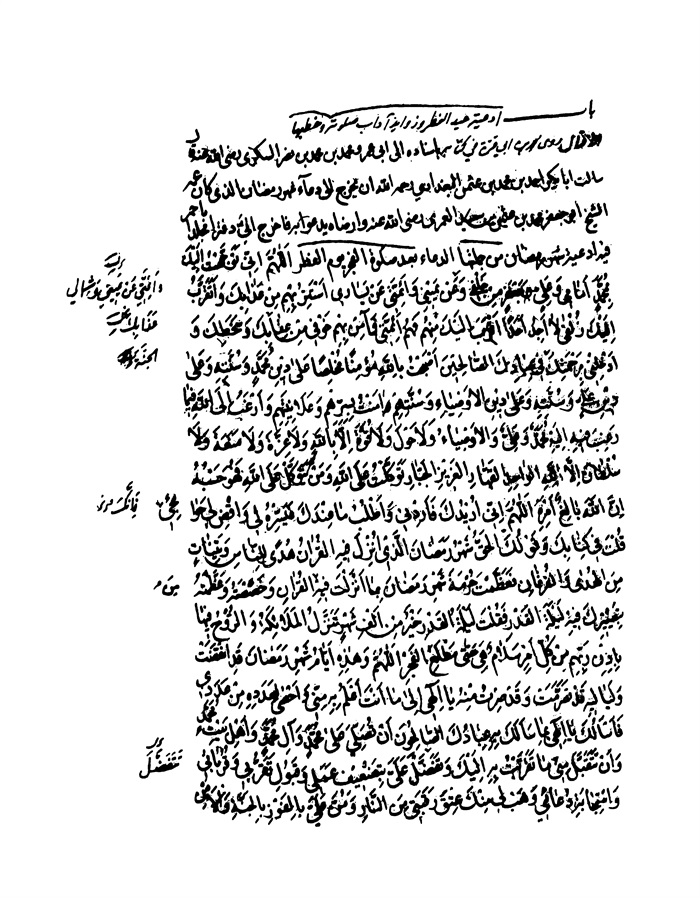 باب أدعية عيد الفطر وزوائد آداب صلوته وخطبها
الاقبال روى محمد بن أبي قرة في كتابه باسناده الى ابى عمرو محمد بن محمد بن نصر السكرى رضى الله عنه
سالت ابا بكر احمد بن محمد بن عثمن البغدادي رحمه الله ان يخرج الى دعاء شهر رمضان الذي كان عمه
الشيخ ابو جعفر محمد بن عثمن بن سعيد العمرى رضى الله عنه وارضاه يدعو به فاخرج الىّ دفترا مجلدا باحمر
فيه ادعية شهر رمضان من جملتها الدعاء بعد صلوة الفجر يوم الفطر اَللّٰهُمَّ اِنّى تَوَجَّهْتُ اِلَيْكَ
بِمُحَمَّدٍ اَمامي وَعَلِيٍّ مِنْ خَلْفي وَعَنْ يَميني وَاَئِمَّتي عَنْ يَساري اَسْتَتِرُ بِهِمْ مِنْ عَذابِكَ وَاَتَقَرَّبُ
اِلَيْكَ زُلْفى لا اَجِدُ اَحَداً اَقْرَبَ اِلَيْكَ مِنْهُمْ فَهُمْ اَئِمَّتي فَآمِنْ بِهِمْ خَوْفي مِنْ عِقابِكَ وَسَخَطِكَ وَ
اَدْخِلْني بِرَحْمَتِكَ في عِبادِكَ الصّالِحينَ اَصْبَحْتُ بِاللهِ مُؤْمِناً مُخْلِصاً عَلى دينِ مُحَمَّدٍ وَسُنَّتِهِ وَعَلى
دينِ عَلِيٍّ وَسُنَّتِهِ وَعَلى دينِ الاَوْصِياءِ وَسُنَّتِهِمْ آمَنْتُ بِسِرِّهِمْ وَعَلانِيَتِهِمْ وَاَرْغَبُ اِلَى اللهِ فيما
رَغِبَ فيهِ اِلَيْهِ مُحَمَّدٌ وَعَلِيٌّ وَالاَوْصِياءُ وَلا حَوْلَ وَلا قُوَّةَ اِلّا بِاللهِ وَلا عِزَّةَ وَلا مَنَعَةَ وَلا
سُلْطانَ اِلّا لِلّٰهِ الواحِدِ القَهّارِ العَزيزِ الجَبّارِ تَوَكَّلْتُ عَلَى اللهِ وَمَنْ يَتَوَكَّلْ عَلَى اللهِ فَهُوَ حَسْبُهُ
اِنَّ اللهَ بالِغُ اَمْرِهِ اَللّٰهُمَّ اِنّي اُريدُكَ فَاَرِدْني وَاَطْلُبُ ما عِنْدَكَ فَيَسِّرْهُ لي وَاقْضِ لي حَوائِجي فَاِنَّكَ
قُلْتَ في كِتابِكَ وَقَوْلُكَ الحَقُّ شَهْرُ رَمَضانَ الَّذي اُنْزِلَ فيهِ القُرْآنُ هُدىً لِلنّاسِ وَبَيِّناتٍ
مِنَ الهُدى وَالفُرْقانِ فَعَظَّمْتَ حُرْمَةَ شَهْرِ رَمَضانَ بِما اَنْزَلْتَ فيهِ القُرْآنَ وَخَصَصْتَهُ وَعَظَّمْتَهُ
بِتَصْييرِكَ فيهِ لَيْلَةَ القَدْرِ فَقُلْتَ لَيْلَةُ القَدْرِ خَيْرٌ مِنْ اَلْفِ شَهْرٍ تَنَزَّلُ المَلائِكَةُ وَالرُّوحُ فيها
بِاِذْنِ رَبِّهِمْ مِنْ كُلِّ اَمْرٍ سَلامٌ هِيَ حَتّى مَطْلَعِ الفَجْرِ اَللّٰهُمَّ وَهٰذِهِ اَيّامُ شَهْرِ رَمَضانَ قَدِ انْقَضَتْ
وَلَياليهِ قَدْ تَصَرَّمَتْ وَقَدْ صِرْتُ مِنْهُ يا اِلٰهي اِلى ما اَنْتَ اَعْلَمُ بِهِ مِنّي وَاَحْصى لِعَدَدِهِ مِنْ عَدَدي
فَاَسْاَلُكَ يا اِلٰهي بِما سَاَلَكَ بِهِ عِبادُكَ الصّالِحُونَ اَنْ تُصَلِّيَ عَلى مُحَمَّدٍ وَآلِ مُحَمَّدٍ وَاَهْلِ بَيْتِ مُحَمَّدٍ
وَاَنْ تَتَقَبَّلَ مِنّي ما تَقَرَّبْتُ بِهِ اِلَيْكَ وَتَفَضَّلَ عَلَيَّ بِتَضْعيفِ عَمَلي وَقَبُولِ تَقَرُّبي وَقُرُباتي
وَاسْتِجابَةِ دُعائي وَهَبْ لي مِنْكَ عِتْقَ رَقَبَتي مِنَ النّارِ وَمُنَّ عَلَيَّ بِالفَوْزِ بِالجَنَّةِ وَالاَمْنِ
وَاَئِمَّتي عَنْ يَميني وَشِمالي
عَذابِكَ
الجَنَّةَ
تَتَفَضَّلَ